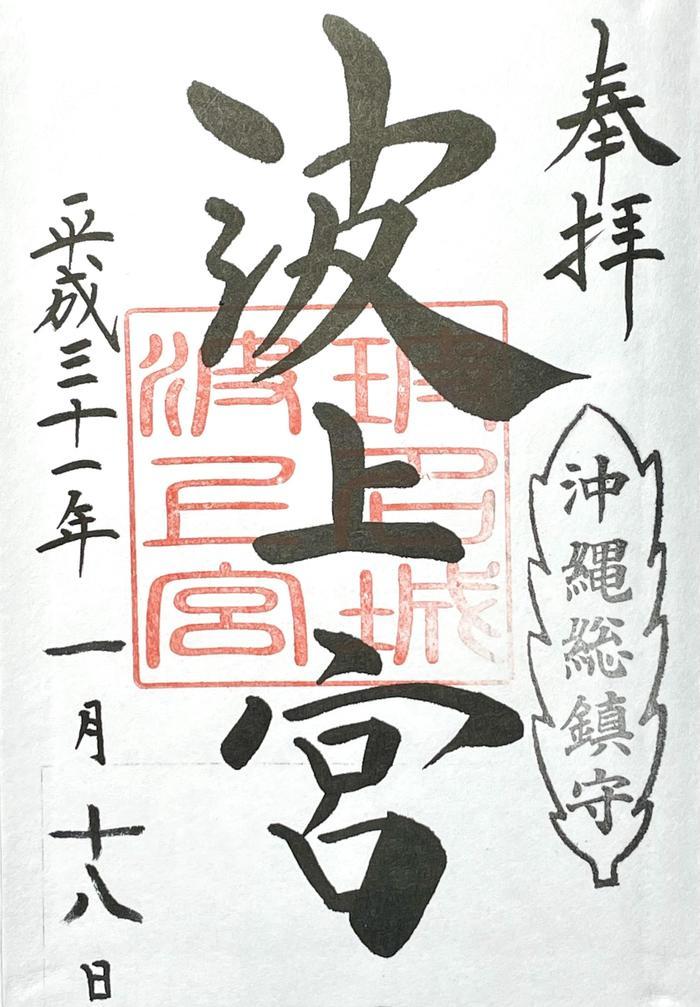 奉拝
沖縄総鎮守
波上宮
波上宮
平成三十一年一月十八日